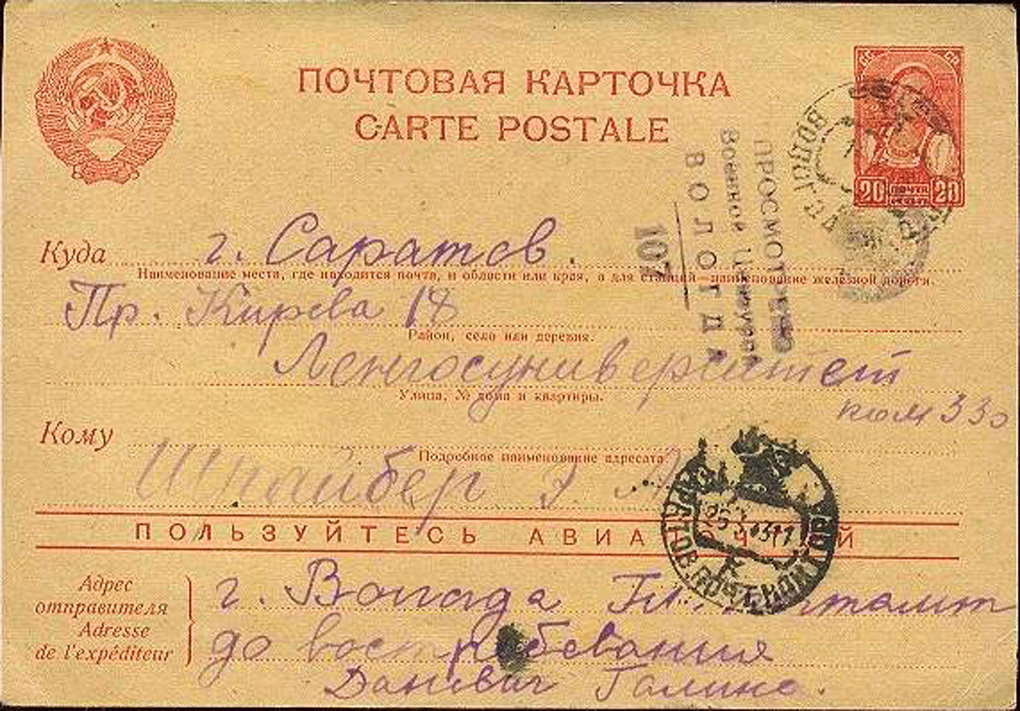 ПОЧТОВАЯ КАРТОЧКА
CARTE POSTALE
20 ПОЧТА 20
ПРОСМОТРЕНО
Военной Цензурой
ВОЛОГДА
107
Куда г. Саратов.
Наименование места, где находится почта, и области или края, а для станций—наименование железной дороги.
Пр. Кирова 18
Район, село или деревня.
Ленгосуниверситет
Улица, № дома и квартиры.
ком 330
Кому
Подробное наименование адресата
Шпайбер Э
ПОЛЬЗУЙТЕСЬ АВИА
САРАТОВ.ПОЧТ.КОНТОРА
Адрес отправителя
Adresse de l'expéditeur
г. Вологда
до востребования
Даневич Галина.